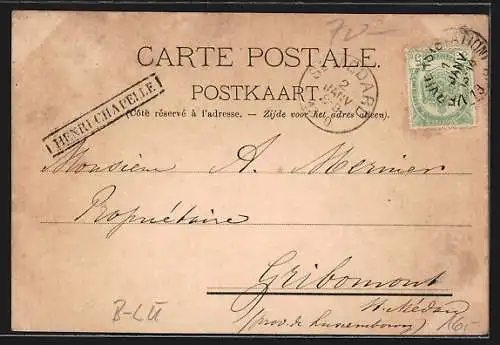 70-
CARTE POSTALE.
POSTKAART.
(Côté réservé à l'adresse. — Zijde voor het adres alleen).
HENRI-CHAPELLE
2
JANV
5
7
JANV
Monsieur A. Mernier
Propriétaire
Gribomont
St Médard
(prov. de Luxembourg)
B-LÜ
160.-